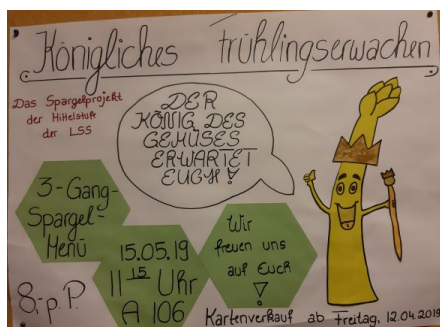 Königliches Frühlingserwachen
Das Spargelprojekt
der Mittelstufe
der LSS
DER
KÖNIG DES
GEMÜSES
ERWARTET
EUCH!
3-Gang-
Spargel-
Menü
15.05.19
11 15 Uhr
A 106
Wir
freuen uns
auf Euch
!
8,- p. P.
Kartenverkauf ab Freitag, 12.04.2019